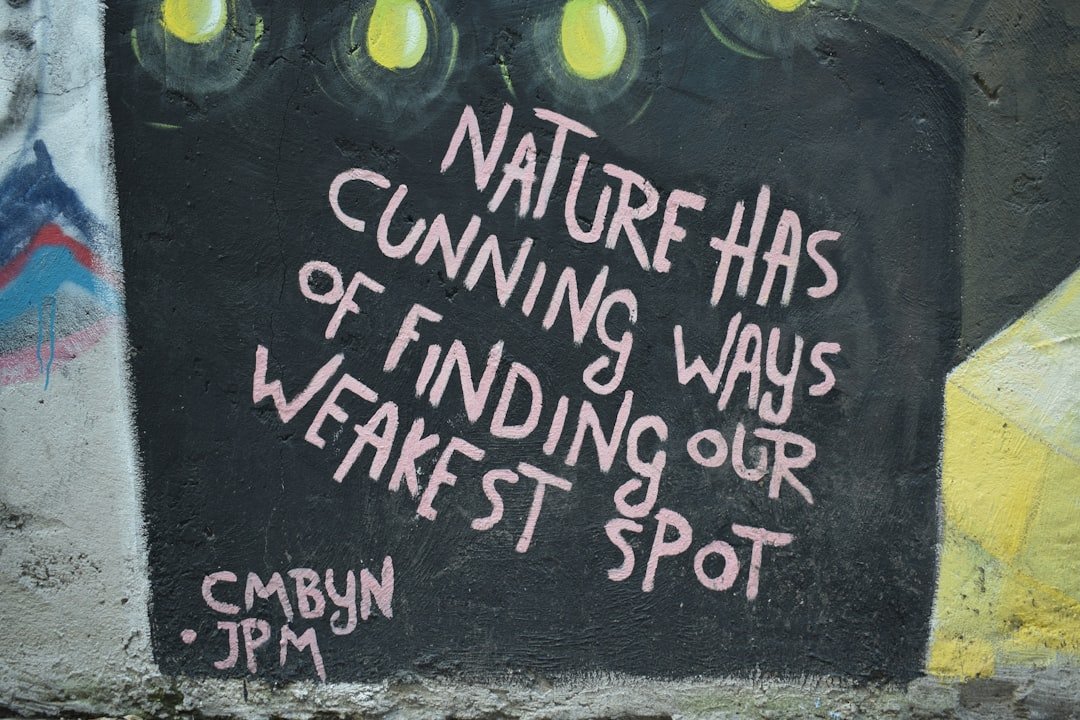 NATURE HAS
CUNNING WAYS
OF FINDING OUR
WEAKEST SPOT
CMBYN
• JPM